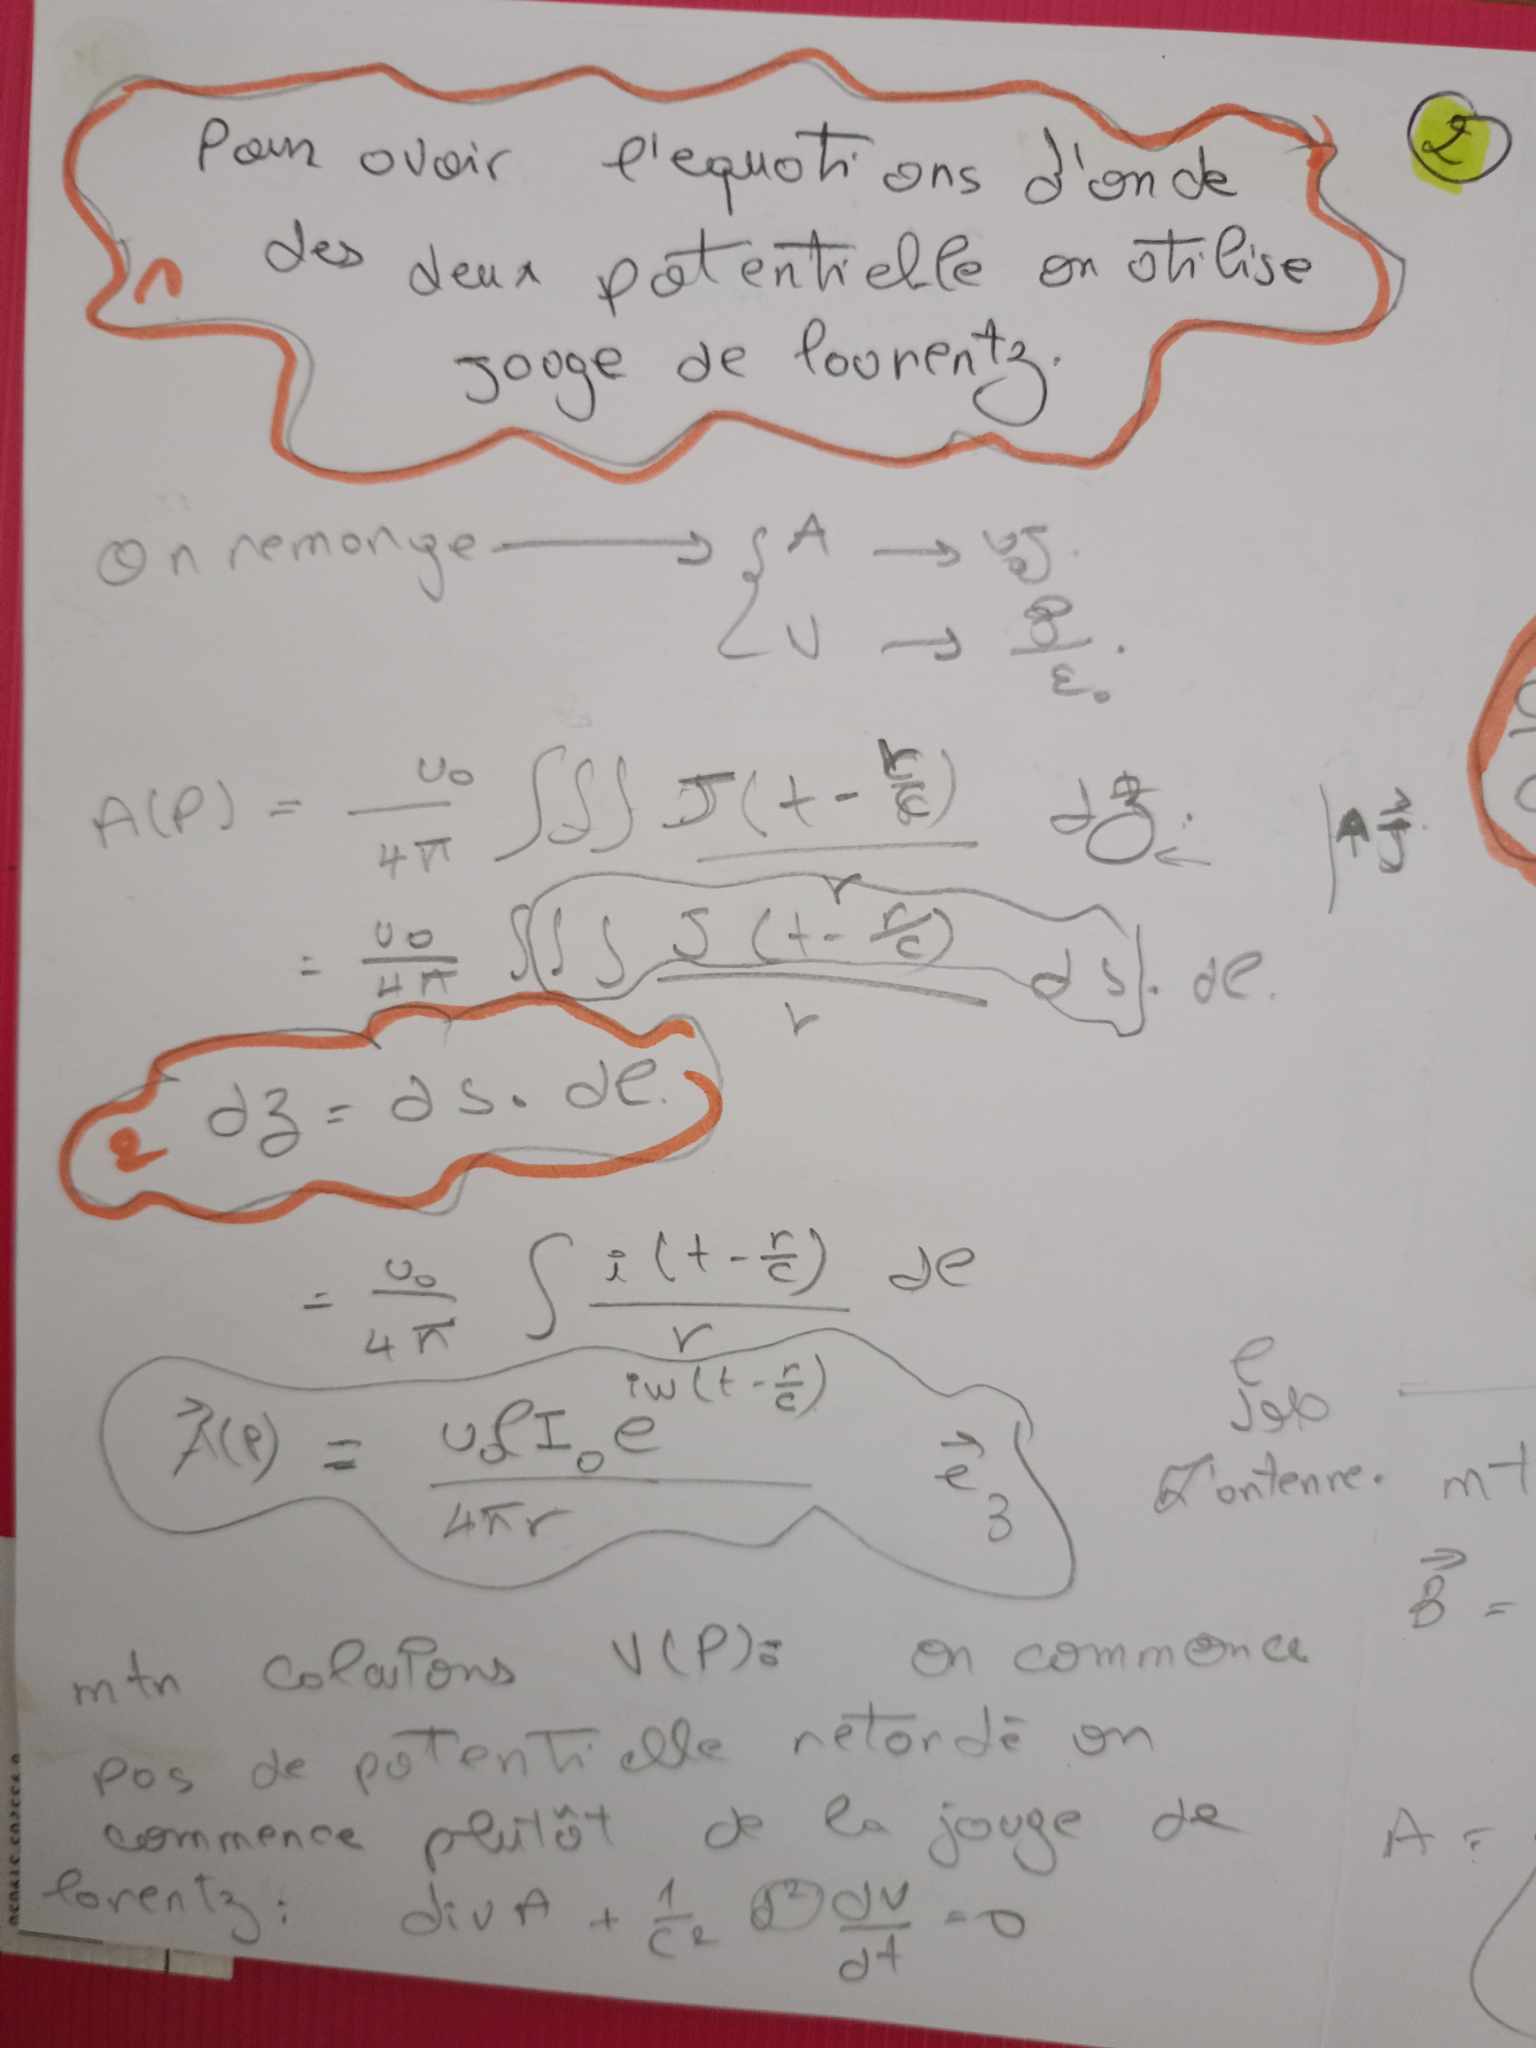 2
Pour avoir l'equations d'onde
1 des deux potentielle on utilise
jouge de lourentz.
On remarge → { A → u₀J.
V → ρ/ε₀.
A(P) = u₀/4π ∭ J(t - r/c)/r dz
= u₀/4π ∭ J(t - r/c)/r ds. dl.
2 dz = ds. dl.
= u₀/4π ∫ i(t - r/c)/r dl
A⃗(P) = u₀lI₀e^iw(t - r/c)/4πr e⃗z
l
d'antenne. mt
B⃗ =
mtn calculons V(P): on commence
pas de potentielle retardé on
commence plutôt de la jauge de
lorentz: divA + 1/c² dV/dt = 0
A =